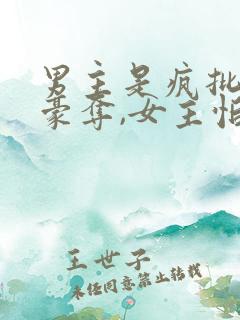 男主是疯批
豪夺,女主怕
王世子
未经同意禁止转载